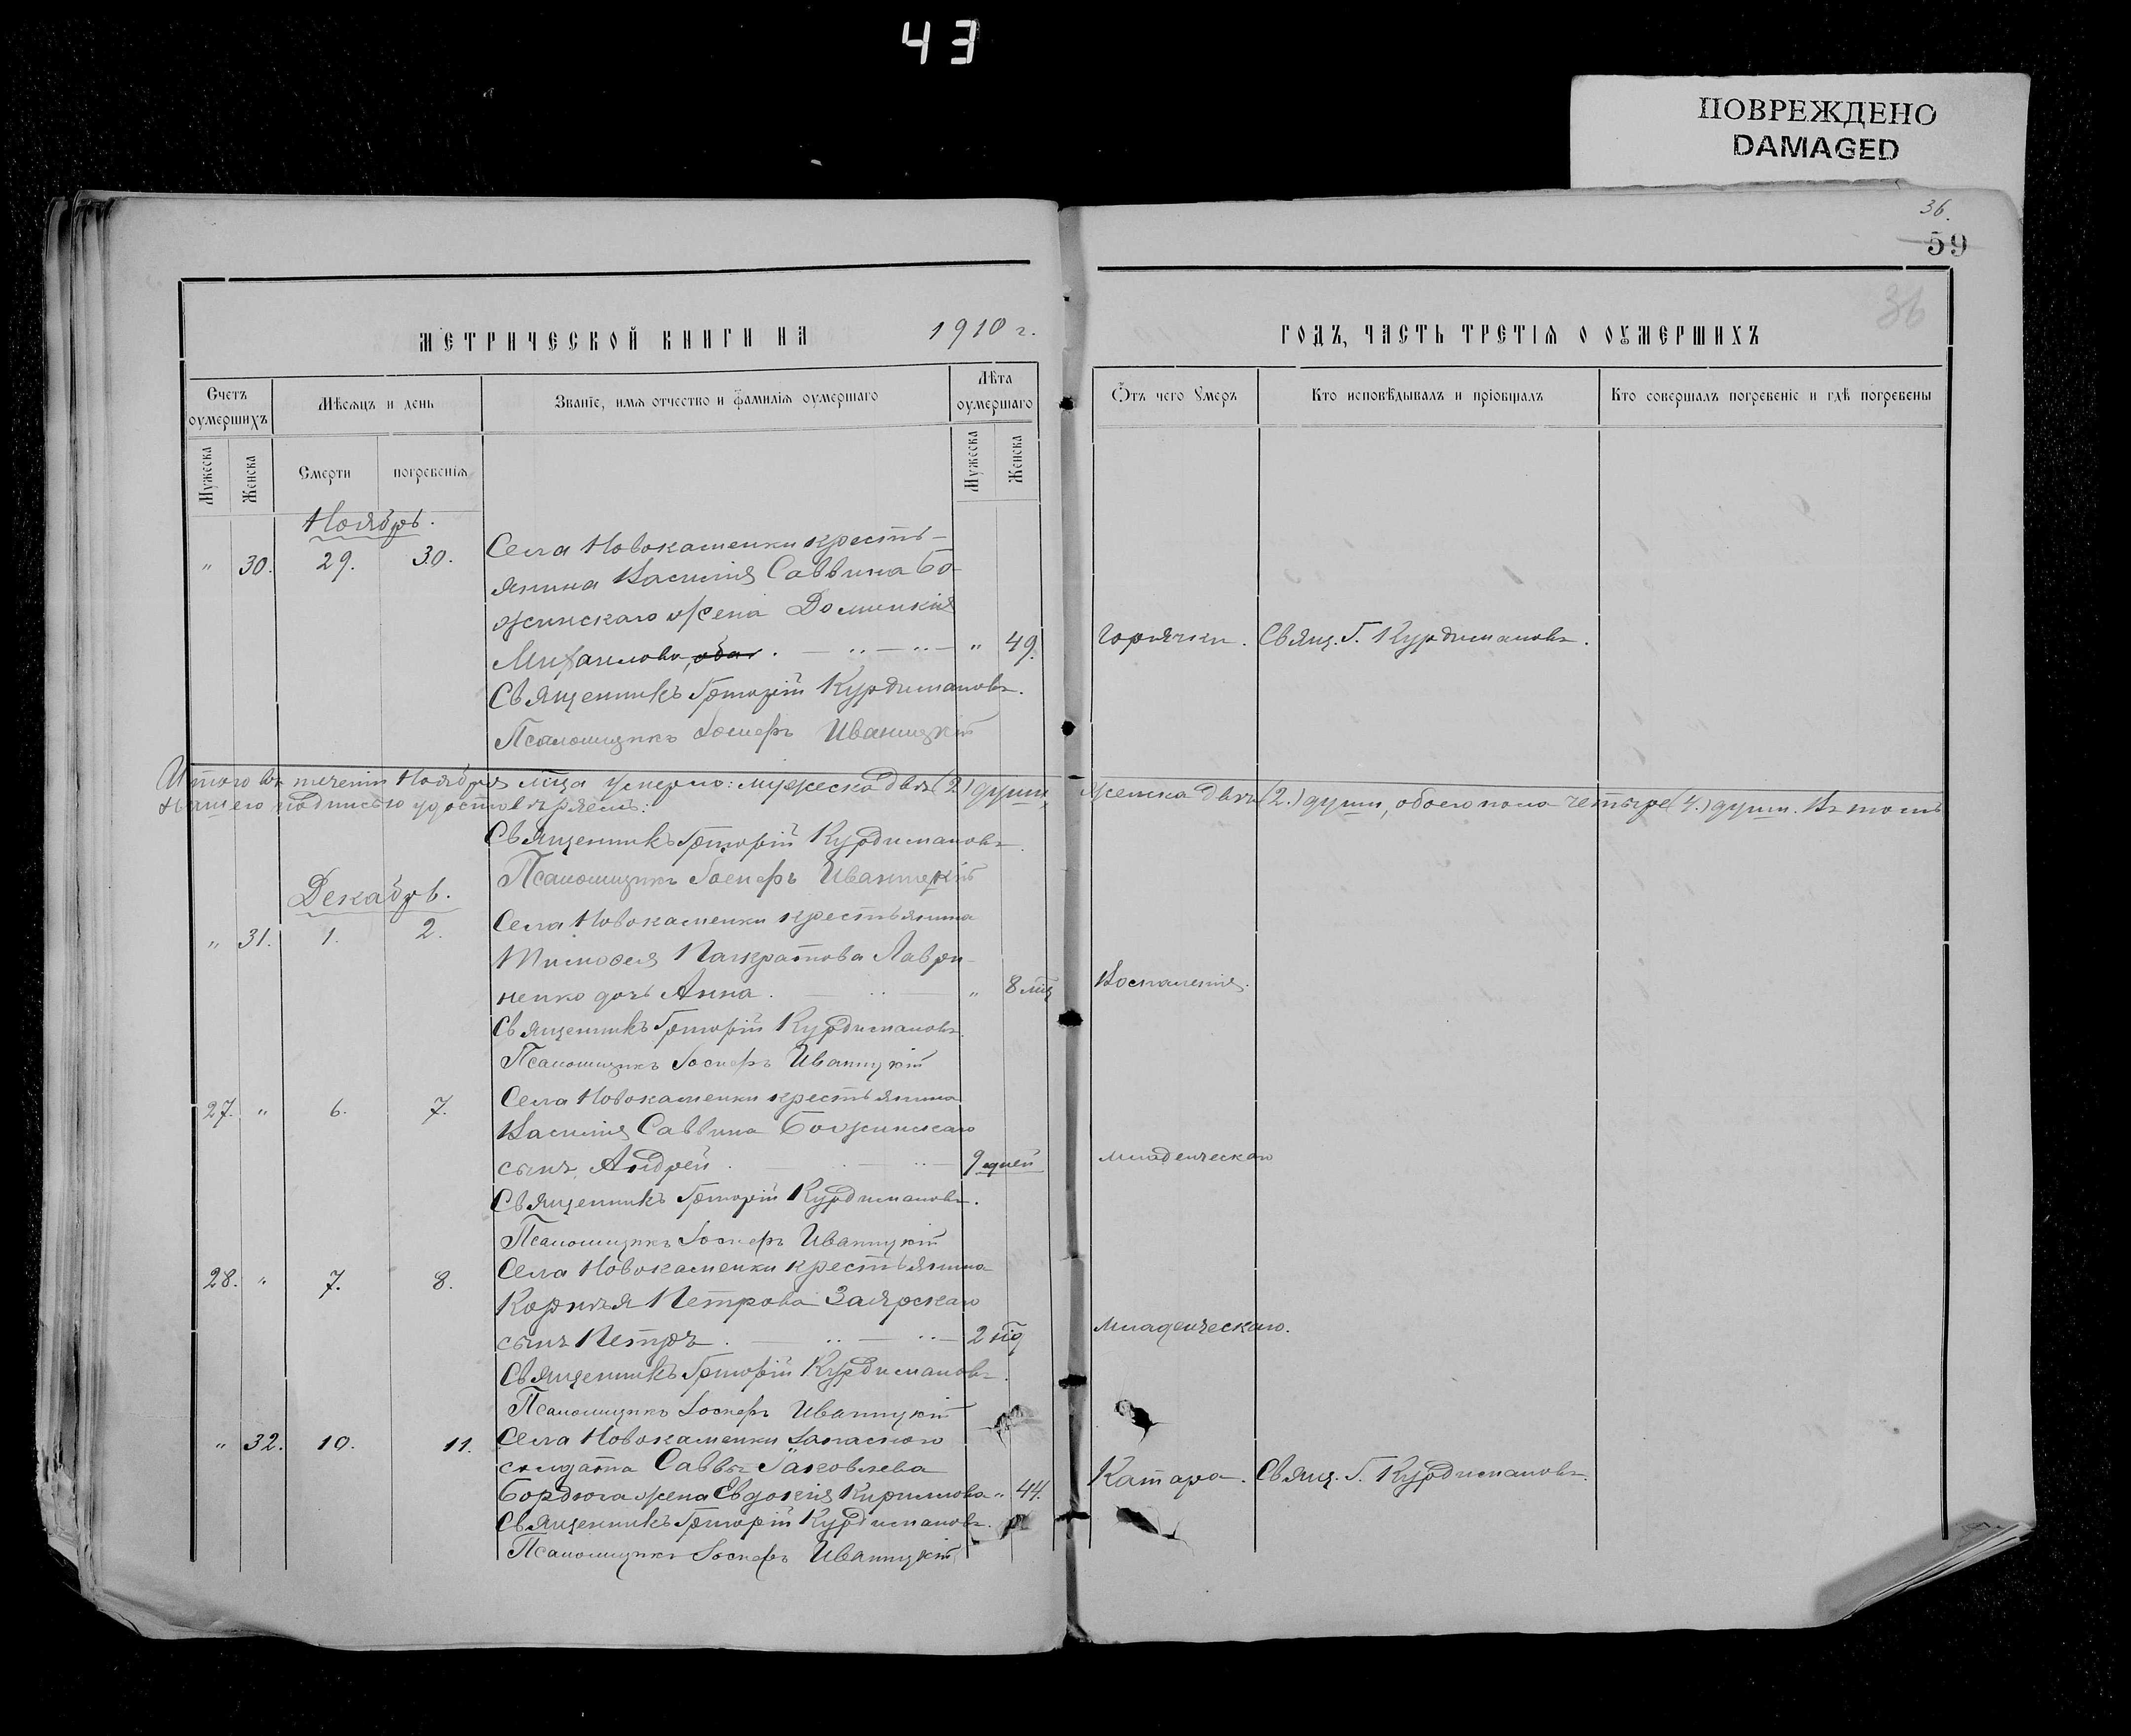 43
ПОВРЕЖДЕНО
DAMAGED
36.
59
36
МЕТРИЧЕСКОЙ КНИГИ НА 1910 г.
ГОДЪ, ЧАСТЬ ТРЕТІЯ О ОУМЕРШИХЪ
Счетъ оумершихъ
Мѣсяцъ и день
Званіе, имя отчество и фамилія оумершаго
Лѣта оумершаго
Отъ чего Умеръ
Кто исповѣдывалъ и пріобщалъ
Кто совершалъ погребеніе и гдѣ погребены
Мужеска
Женска
Смерти
погребенія
Мужеска
Женска
Ноябрь.
" 30. 29. 30. Села Новокаменки кресть-
янина Василія Саввина Бо-
жинскаго жена Домникія
Михаилова, . — " — " — " 49. Горячки. Свящ. Г. Курдимановъ.
Священникъ Григорій Курдимановъ.
Псаломщикъ Іосифъ Иваницкій
Итого въ теченіи Ноября мѣца умерло: мужеска двѣ (2) души, женска двѣ (2.) души, обоего пола четыре (4.) души. Въ томъ
нашею подписью удостовѣряемъ:
Священникъ Григорій Курдимановъ.
Псаломщикъ Іосифъ Иваницкій
Декабрь.
" 31. 1. 2. Села Новокаменки крестьянина
Тимофея Панкратова Лаври-
ненко дочь Анна. — " — " 8 мц Воспаленія.
Священникъ Григорій Курдимановъ.
Псаломщикъ Іосифъ Иваницкій
27. " 6. 7. Села Новокаменки крестьянина
Василія Саввина Божинскаго
сынъ Андрей . — " — 9 дней младенческаго
Священникъ Григорій Курдимановъ.
Псаломщикъ Іосифъ Иваницкій
28. " 7. 8. Села Новокаменки крестьянина
Корнѣя Петрова Заярскаго
сынъ Петръ . — " — " — 2 нд Младенческаго.
Священникъ Григорій Курдимановъ.
Псаломщикъ Іосифъ Иваницкій
" 32. 10. 11. Села Новокаменки запаснаго
солдата Саввы Яковлева
Бордюга жена Евдокія Кириллова " 44. Катара. Свящ. Г. Курдимановъ.
Священникъ Григорій Курдимановъ.
Псаломщикъ Іосифъ Иваницкій